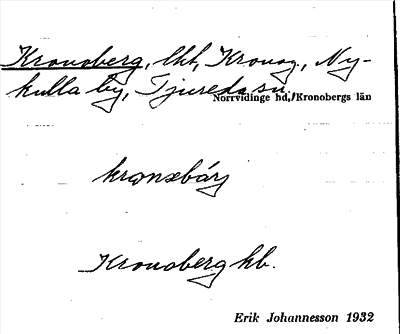 Kronoberg, lht, Kronog., Ny-
kulla by, Tjureda sn,
Norrvidinge hd, Kronobergs län
kronsbárj
Kronoberg hb.
Erik Johannesson 1932